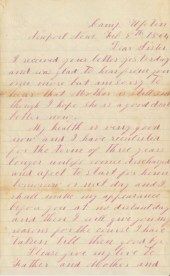 Camp
Newport News Feb. 8th 1864
Dear Sister
I received your letter yesterday
and was glad to hear from you
once more but was sorry to
hear that Mother was still sick
though I hope she is a good deal
better now.
My health is very good
now and I have reenlisted
for the term of three years
longer unless sooner discharged
and expect to start for home
tomorrow or next day and I
shall make my appearance
upon you at no distant day
and then I will give you my
reasons for the course I have
taken till then good by.
Please give my love to
Father and Mother and